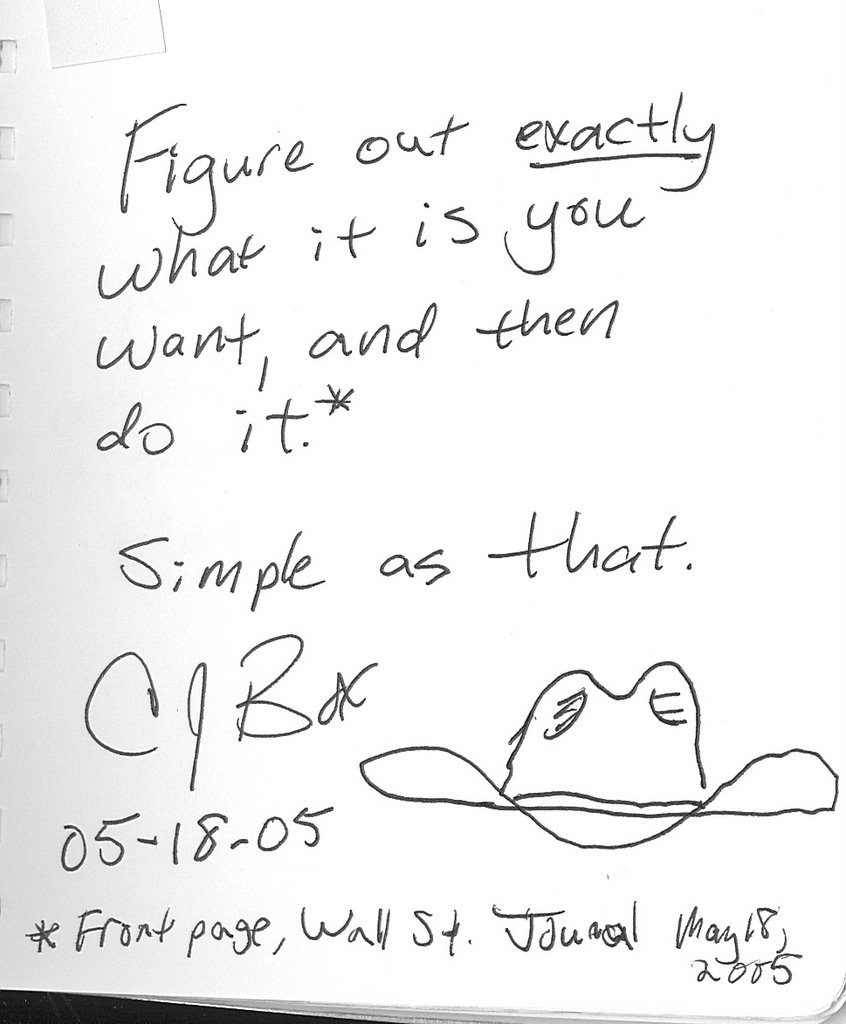 Figure out exactly
what it is you
want, and then
do it.*
Simple as that.
CJ Box
05-18-05
* Front page, Wall St. Journal May 18,
2005